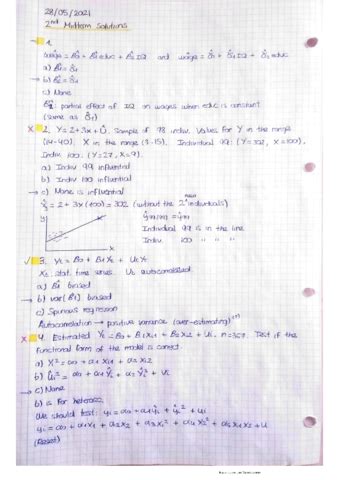 28/05/2021
2nd Midterm Solutions
1.
wage = β̂0 + β̂1 educ + β̂2 IQ and wage = δ̂0 + δ̂1 IQ + δ̂2 educ
a) β̂1 = δ̂1
→ b) β̂2 = δ̂1
c) None
β̂2: partial effect of IQ on wages when educ is constant
(same as δ̂1)
x 2. Y = 2 + 3x + Û. Sample of 98 indiv. Values for Y in the range
(14-40). X in the range (3-15). Individual 99: (Y=302, X=100),
Indiv 100: (Y=27, X=9).
a) Indiv 99 influential
b) Indiv 100 influential
→ c) None is influential
= 2 + 3 x (100) = 302 (without the 2 individuals)
y
Individual 99 is in the line
Indiv 100 " " " "
x
✓ 3. Yt = β0 + β1 Xt + Ut
Xt stat. time series. Ut autocorrelated.
a) β̂1 biased
→ b) var(β̂1) biased
c) Spurious regression
Autocorrelation → positive variance (over-estimating)
x 4. Estimated Yi = β0 + β1 X1 + β2 X2 + Ui, n=367. Test if the
functional form of the model is correct
→ c) None
b) is for heterosc.
We should test:
(Reset)